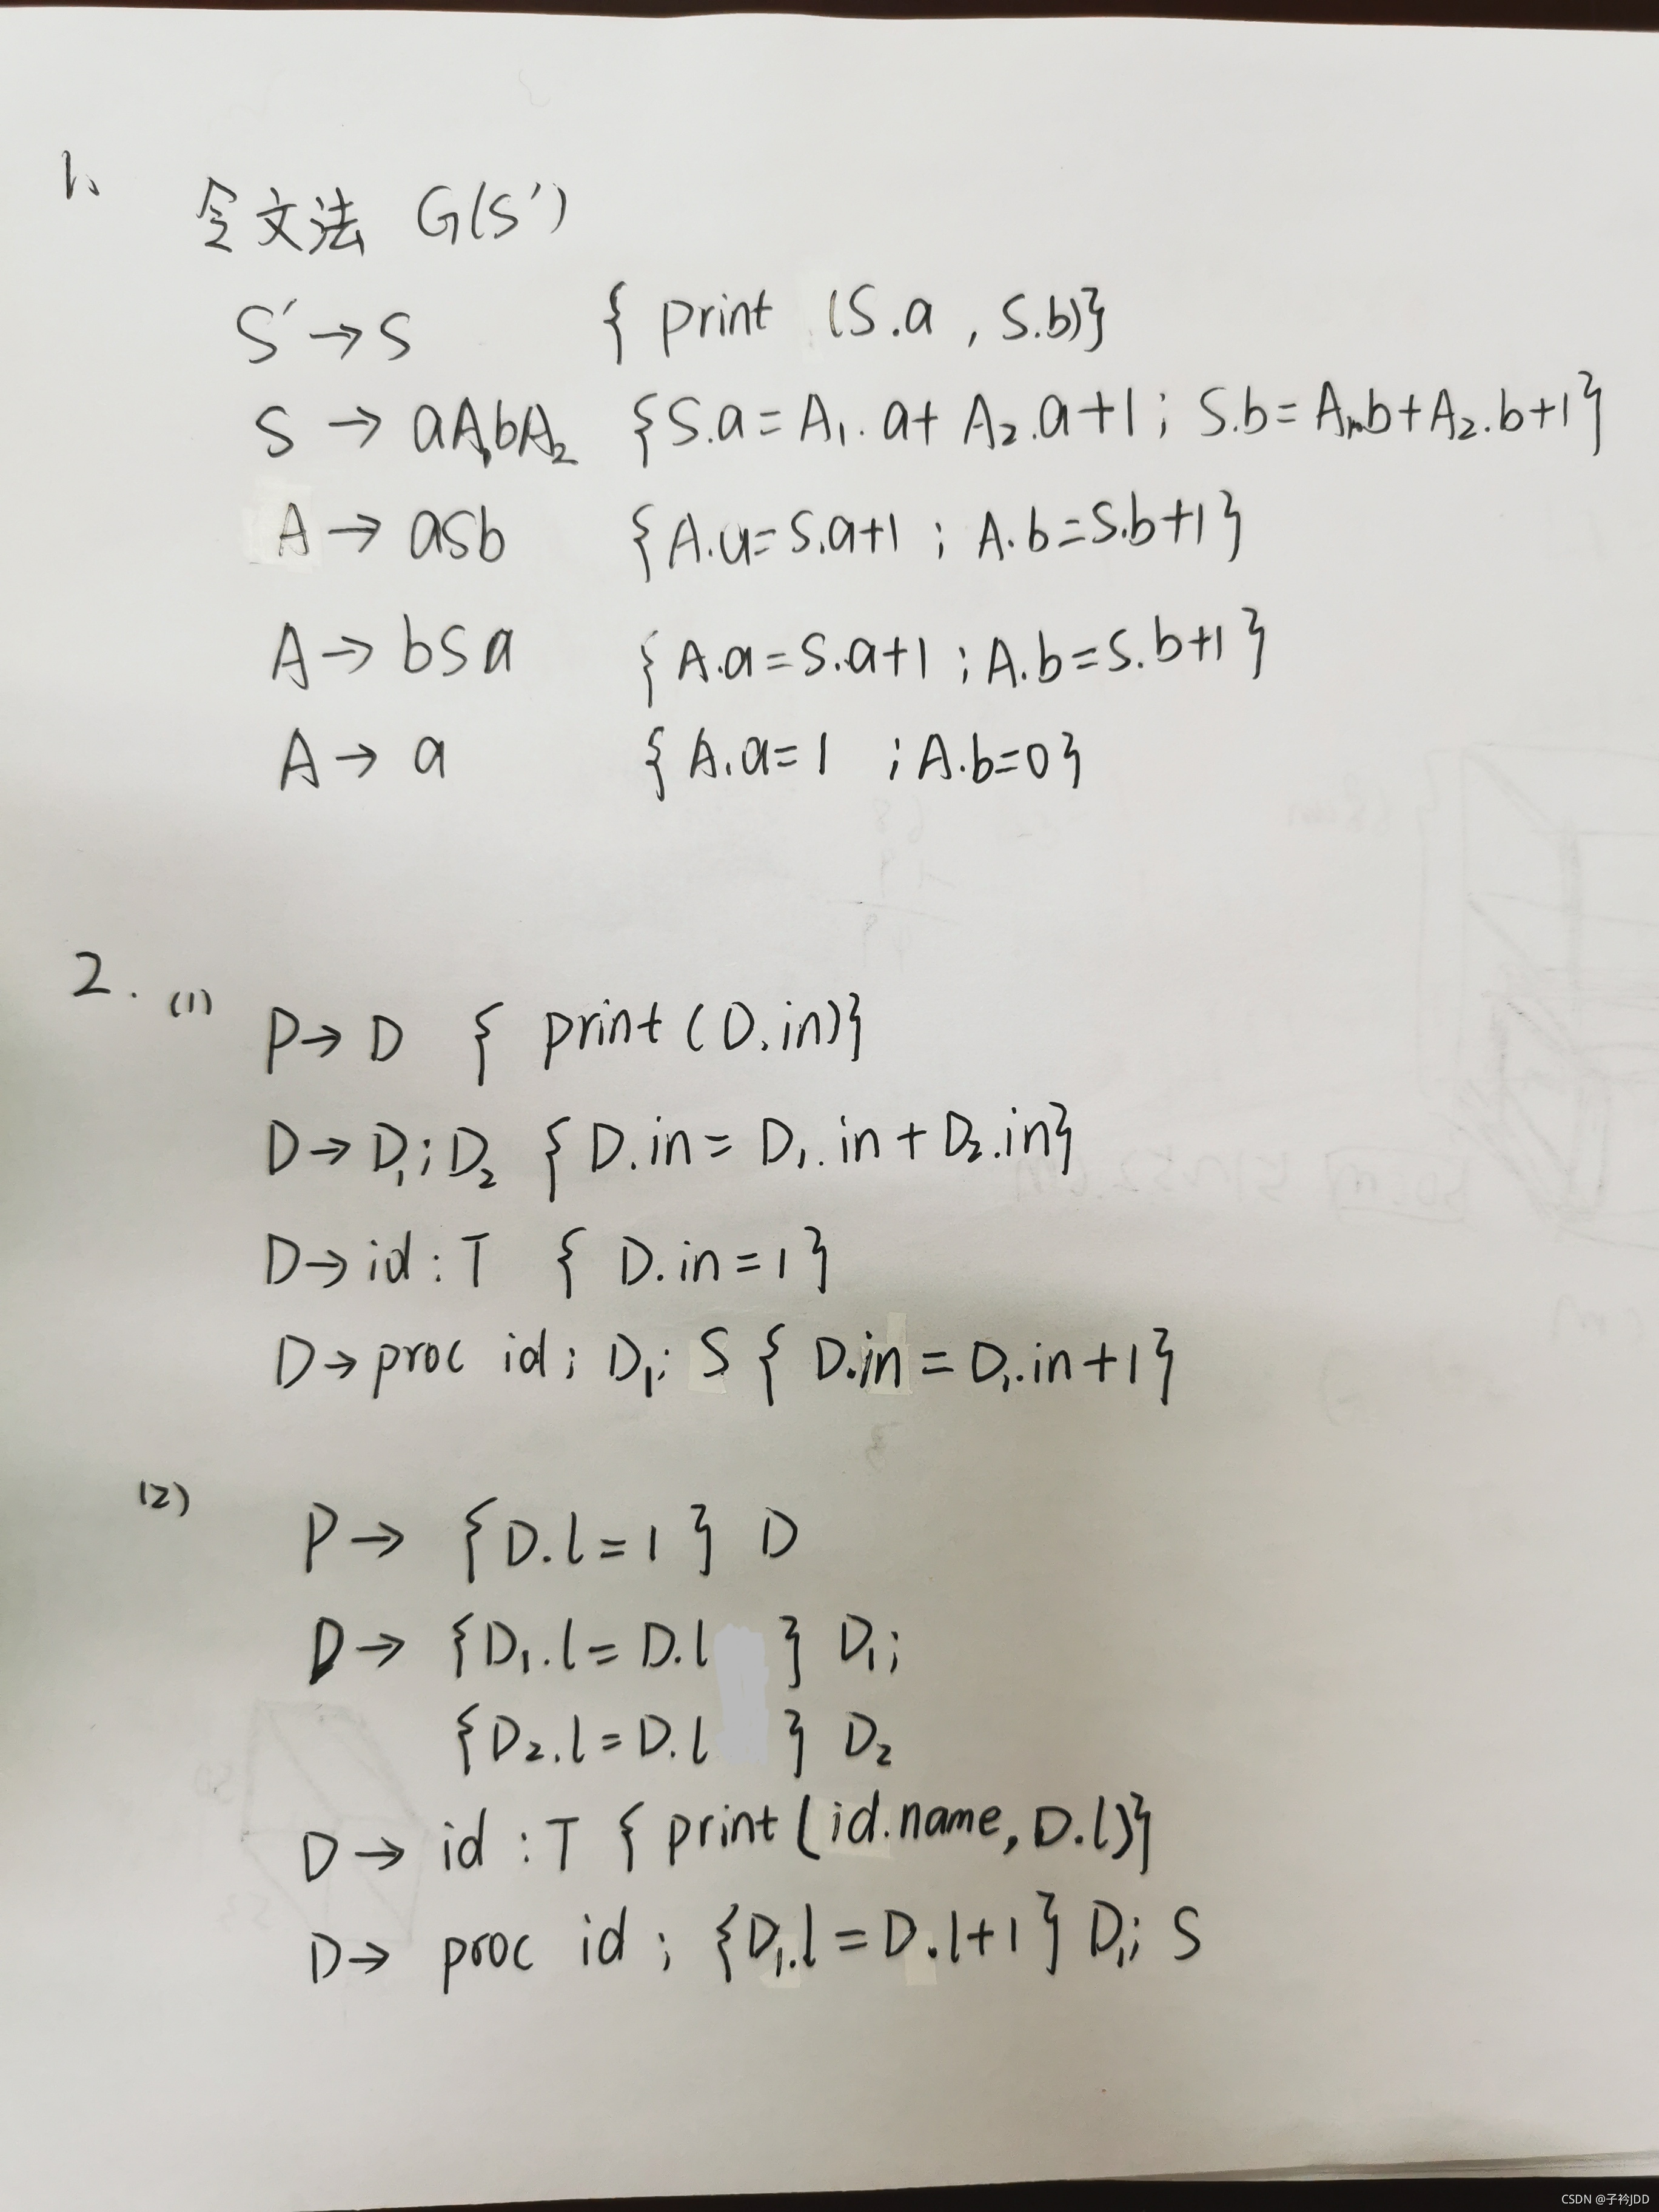 1、
令文法 G(S′)
S′→S { print (S.a , S.b)}
S → aA₁bA₂ {S.a = A₁.a + A₂.a+1 ; S.b = A₁.b + A₂.b+1}
A → aSb {A.a = S.a+1 ; A.b = S.b+1}
A → bSa {A.a = S.a+1 ; A.b = S.b+1}
A → a {A.a = 1 ; A.b = 0}
2. (1) P → D { print (D.in)}
D → D₁; D₂ {D.in = D₁.in + D₂.in}
D → id : T { D.in = 1 }
D → proc id ; D₁; S { D.in = D₁.in + 1 }
(2) P → {D.l = 1 } D
D → {D₁.l = D.l } D₁;
{D₂.l = D.l } D₂
D → id : T { print ( id.name, D.l)}
D → proc id ; {D₁.l = D.l+1 } D₁; S
CSDN @子衿JDD